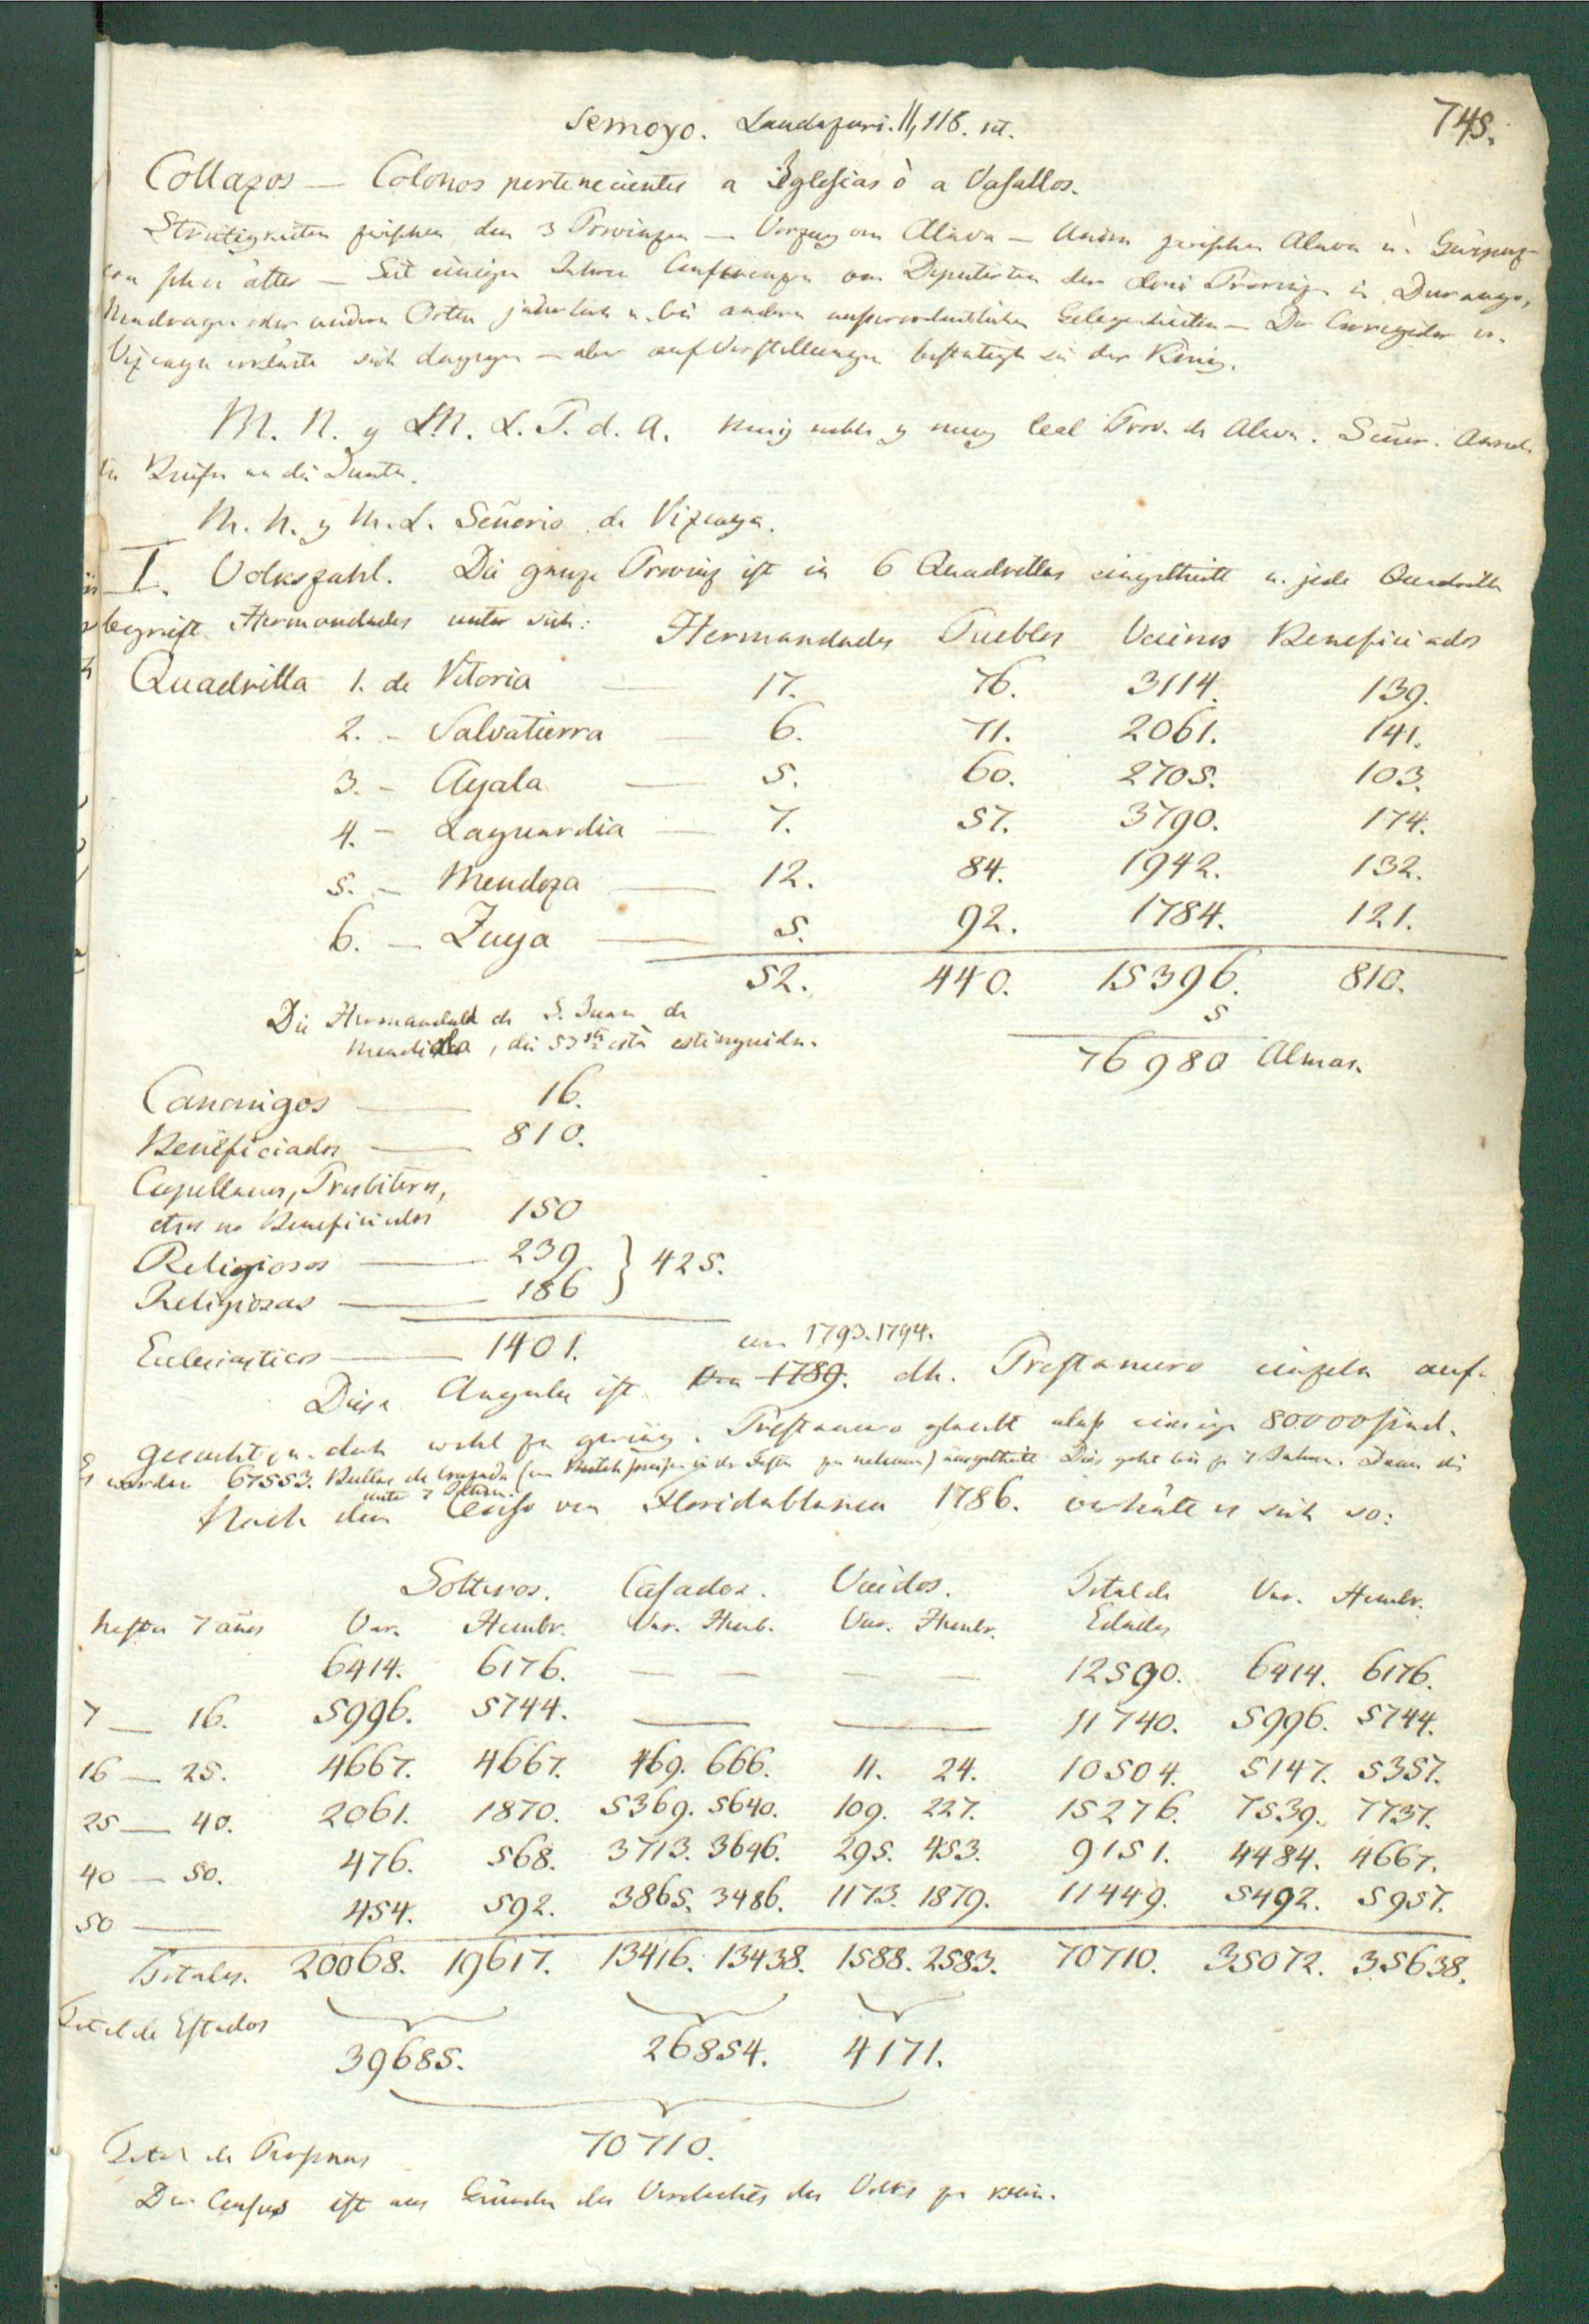 semoyo. Landazuri. II, 116. st.
745.
Collazos — Colonos pertenecientes a Iglesias ò a Vasallos.
Streitigkeiten zwischen den 3 Provinzen — Vorzug von Alava — Andre zwischen Alava u. Guipuz-
coa schon älter — Seit einigen Jahren Conferenzen von Deputirten der drei Provinzen in Durango,
Mondragon oder andern Orten jährlich u. bei andern ausserordentlichen Gelegenheiten — Der Corregidor v.
Vizcaya erklärte sich dagegen — aber auf Vorstellungen bestätigte sie der König.
M. N. y M. L. P. d. A. Muy noble y muy leal Prov. de Alava. Señor. Anrede
in Briefen an die Junta.
M. N. y M. L. Señorio de Vizcaya.
I. Volkszahl. Die ganze Provinz ist in 6 Quadrillas eingetheilt u. jede Quadrilla
begreift Hermandades unter sich: Hermandades Pueblos Vecinos Beneficiados
Quadrilla 1. de Vitoria — 17. 76. 3114. 139.
2. – Salvatierra — 6. 71. 2061. 141.
3. – Ayala — 5. 60. 2705. 103.
4. – Laguardia — 7. 57. 3790. 174.
5. – Mendoza — 12. 84. 1942. 132.
6. – Zuya — 5. 92. 1784. 121.
52. 440. 15396. 810.
5
Die Hermandad de S. Juan de
Mendiola, die 53ste està estinguida.
76980 Almas.
Canonigos — 16.
Beneficiados — 810.
Capellanes, Presbiteros,
etros no Beneficiados 150
Religiosos — 239 } 425.
Religiosas — 186
Eclesiasticos — 1401.
von 1793. 1794.
Diese Angabe ist von 1789. dh. Prestamero einzeln auf-
gesucht, u. doch wohl zu gering. Prestamero glaubt dass einige 80000 sind.
Es werden 67553. Bullas de cruzada (um Fleischspeisen in der Fasten zu nehmen) ausgetheilt. Dies geht bis zu 7 Jahren. Denn die
unter 7 Jahren
Nach dem Censo von Floridablanca 1786. verhält es sich so:
Solteros. Casados. Viudos. Total de Var. Hembr.
hasta 7 años Var. Hembr. Var. Hemb. Var. Hembr. Edades
6414. 6176. — — — — 12590. 6414. 6176.
7 — 16. 5996. 5744. — — 11740. 5996. 5744.
16 — 25. 4667. 4667. 469. 666. 11. 24. 10504. 5147. 5357.
25 — 40. 2061. 1870. 5369. 5640. 109. 227. 15276. 7539. 7737.
40 — 50. 476. 568. 3713. 3646. 295. 453. 9151. 4484. 4667.
50 — 454. 592. 3865. 3486. 1173. 1879. 11449. 5492. 5957.
Totales. 20068. 19617. 13416. 13438. 1588. 2583. 70710. 35072. 35638.
Total de Estados
39685. 26854. 4171.
Total de Personas 70710.
Der Census ist aus Gründen des Verdachts des Volks zu klein.